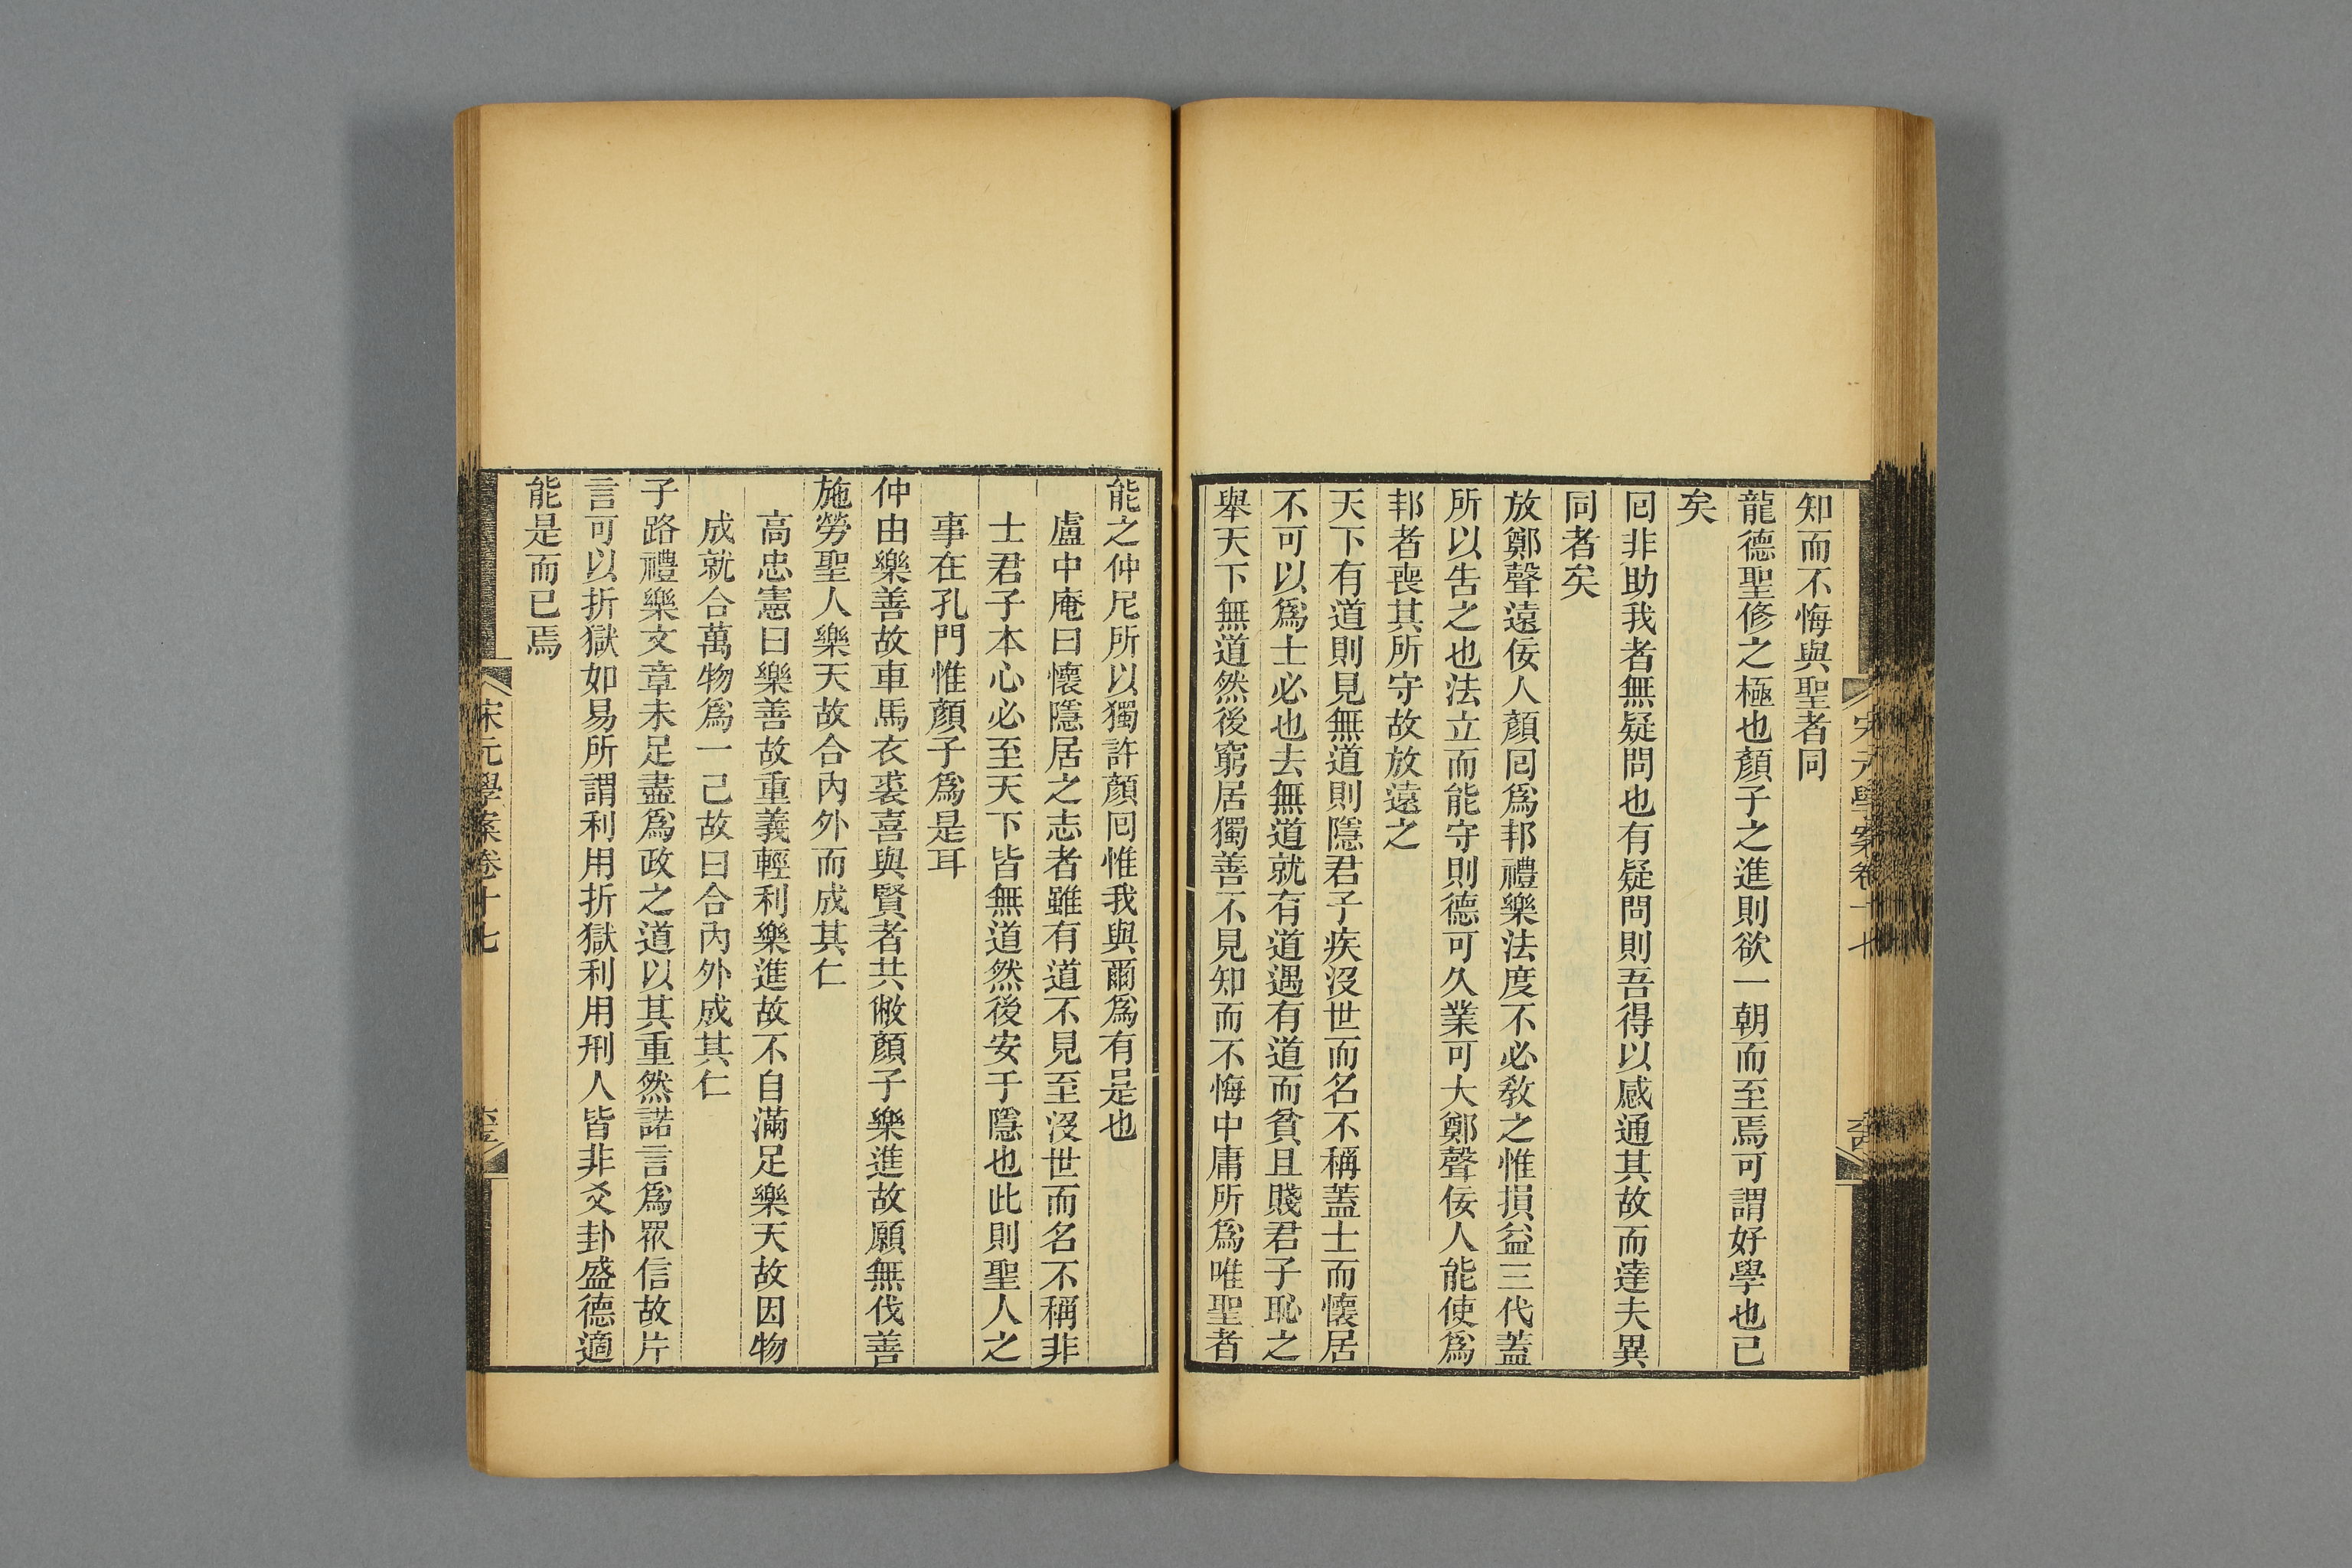 知而不悔與聖者同
龍德聖修之極也顏子之進則欲一朝而至焉可謂好學也已
矣
囘非助我者無疑問也有疑問則吾得以感通其故而達夫異
同者矣
放鄭聲遠佞人顏囘爲邦禮樂法度不必敎之惟損益三代蓋
所以告之也法立而能守則德可久業可大鄭聲佞人能使爲
邦者喪其所守故放遠之
天下有道則見無道則隱君子疾沒世而名不稱蓋士而懷居
不可以爲士必也去無道就有道遇有道而貧且賤君子恥之
舉天下無道然後窮居獨善不見知而不悔中庸所爲唯聖者
能之仲尼所以獨許顏囘惟我與爾爲有是也
盧中庵曰懷隱居之志者雖有道不見至沒世而名不稱非
士君子本心必至天下皆無道然後安于隱也此則聖人之
事在孔門惟顏子爲是耳
仲由樂善故車馬衣裘喜與賢者共敝顏子樂進故願無伐善
施勞聖人樂天故合內外而成其仁
高忠憲曰樂善故重義輕利樂進故不自滿足樂天故因物
成就合萬物爲一己故曰合內外成其仁
子路禮樂文章未足盡爲政之道以其重然諾言爲眾信故片
言可以折獄如易所謂利用折獄利用刑人皆非爻卦盛德適
能是而已焉
宋元學案卷十七